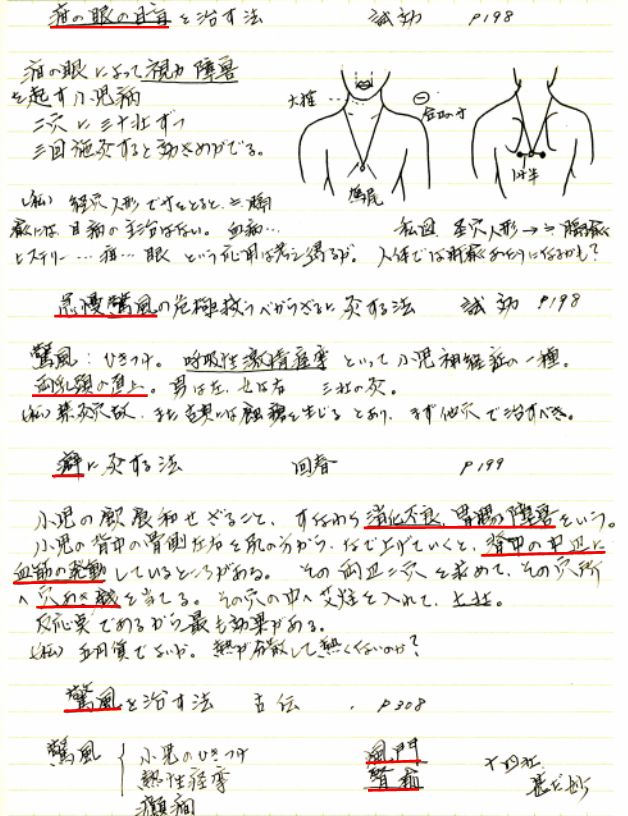 疳の眼の目盲を治す法 試効 P198
疳の眼によって視力障害
を起す小児病
二穴に三十壮ずつ
三回施灸すると効きめがでる。
大椎
鳩尾
1寸半
(私) 経穴人形で寸をとると、≒膈
兪には目病の主治はない。血病…
ヒステリー…疳…眼 という応用は考え得るが。
私図、経穴人形→≒膈兪
人体では肝兪あたりになるかも?
急慢驚風の危極救うべからざるに灸する法 試効 P198
驚風:ひきつけ。呼吸性激情痙攣といって小児神経症の一種。
両乳頭の直上。男は左、女は右 三壮の灸。
(私)禁灸穴故、また古典には蝕瘡を生じるとあり、まず他穴で治すべき。
癖に灸する法 回春 P199
小児の飲食和せざること、すなわち消化不良、胃腸の障害をいう。
小児の背中の骨側左右を尻の方から、なで上げていくと、背中の中辺に
血筋の発動しているところがある。その両辺二穴を求めて、その穴所
へ穴あき銭を当てる。その穴の中へ艾炷を入れて、七壮。
反応点であるから最も効果がある。
(私) 五円貨でないか。熱が発散して熱くないのか?
驚風を治す法 古伝 P308
驚風 小児のひきつけ
熱性痙攣
癲癇
風門
腎兪
十四壮
甚だ妙